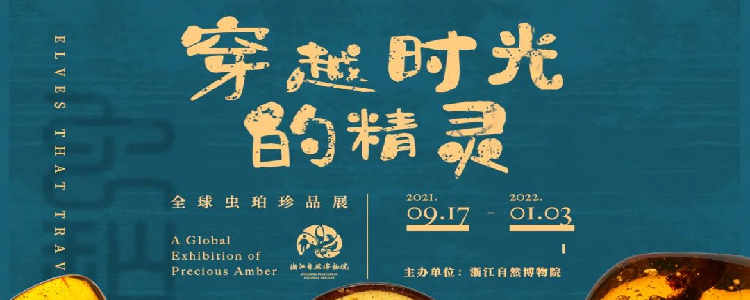 ELVES THAT TRAV
穿越时光
的精灵
全球虫珀珍品展
A Global
Exhibition of
Precious Amber
浙江自然博物院
2021.
09.17
-
2022.
01.03
主办单位：浙江自然博物院